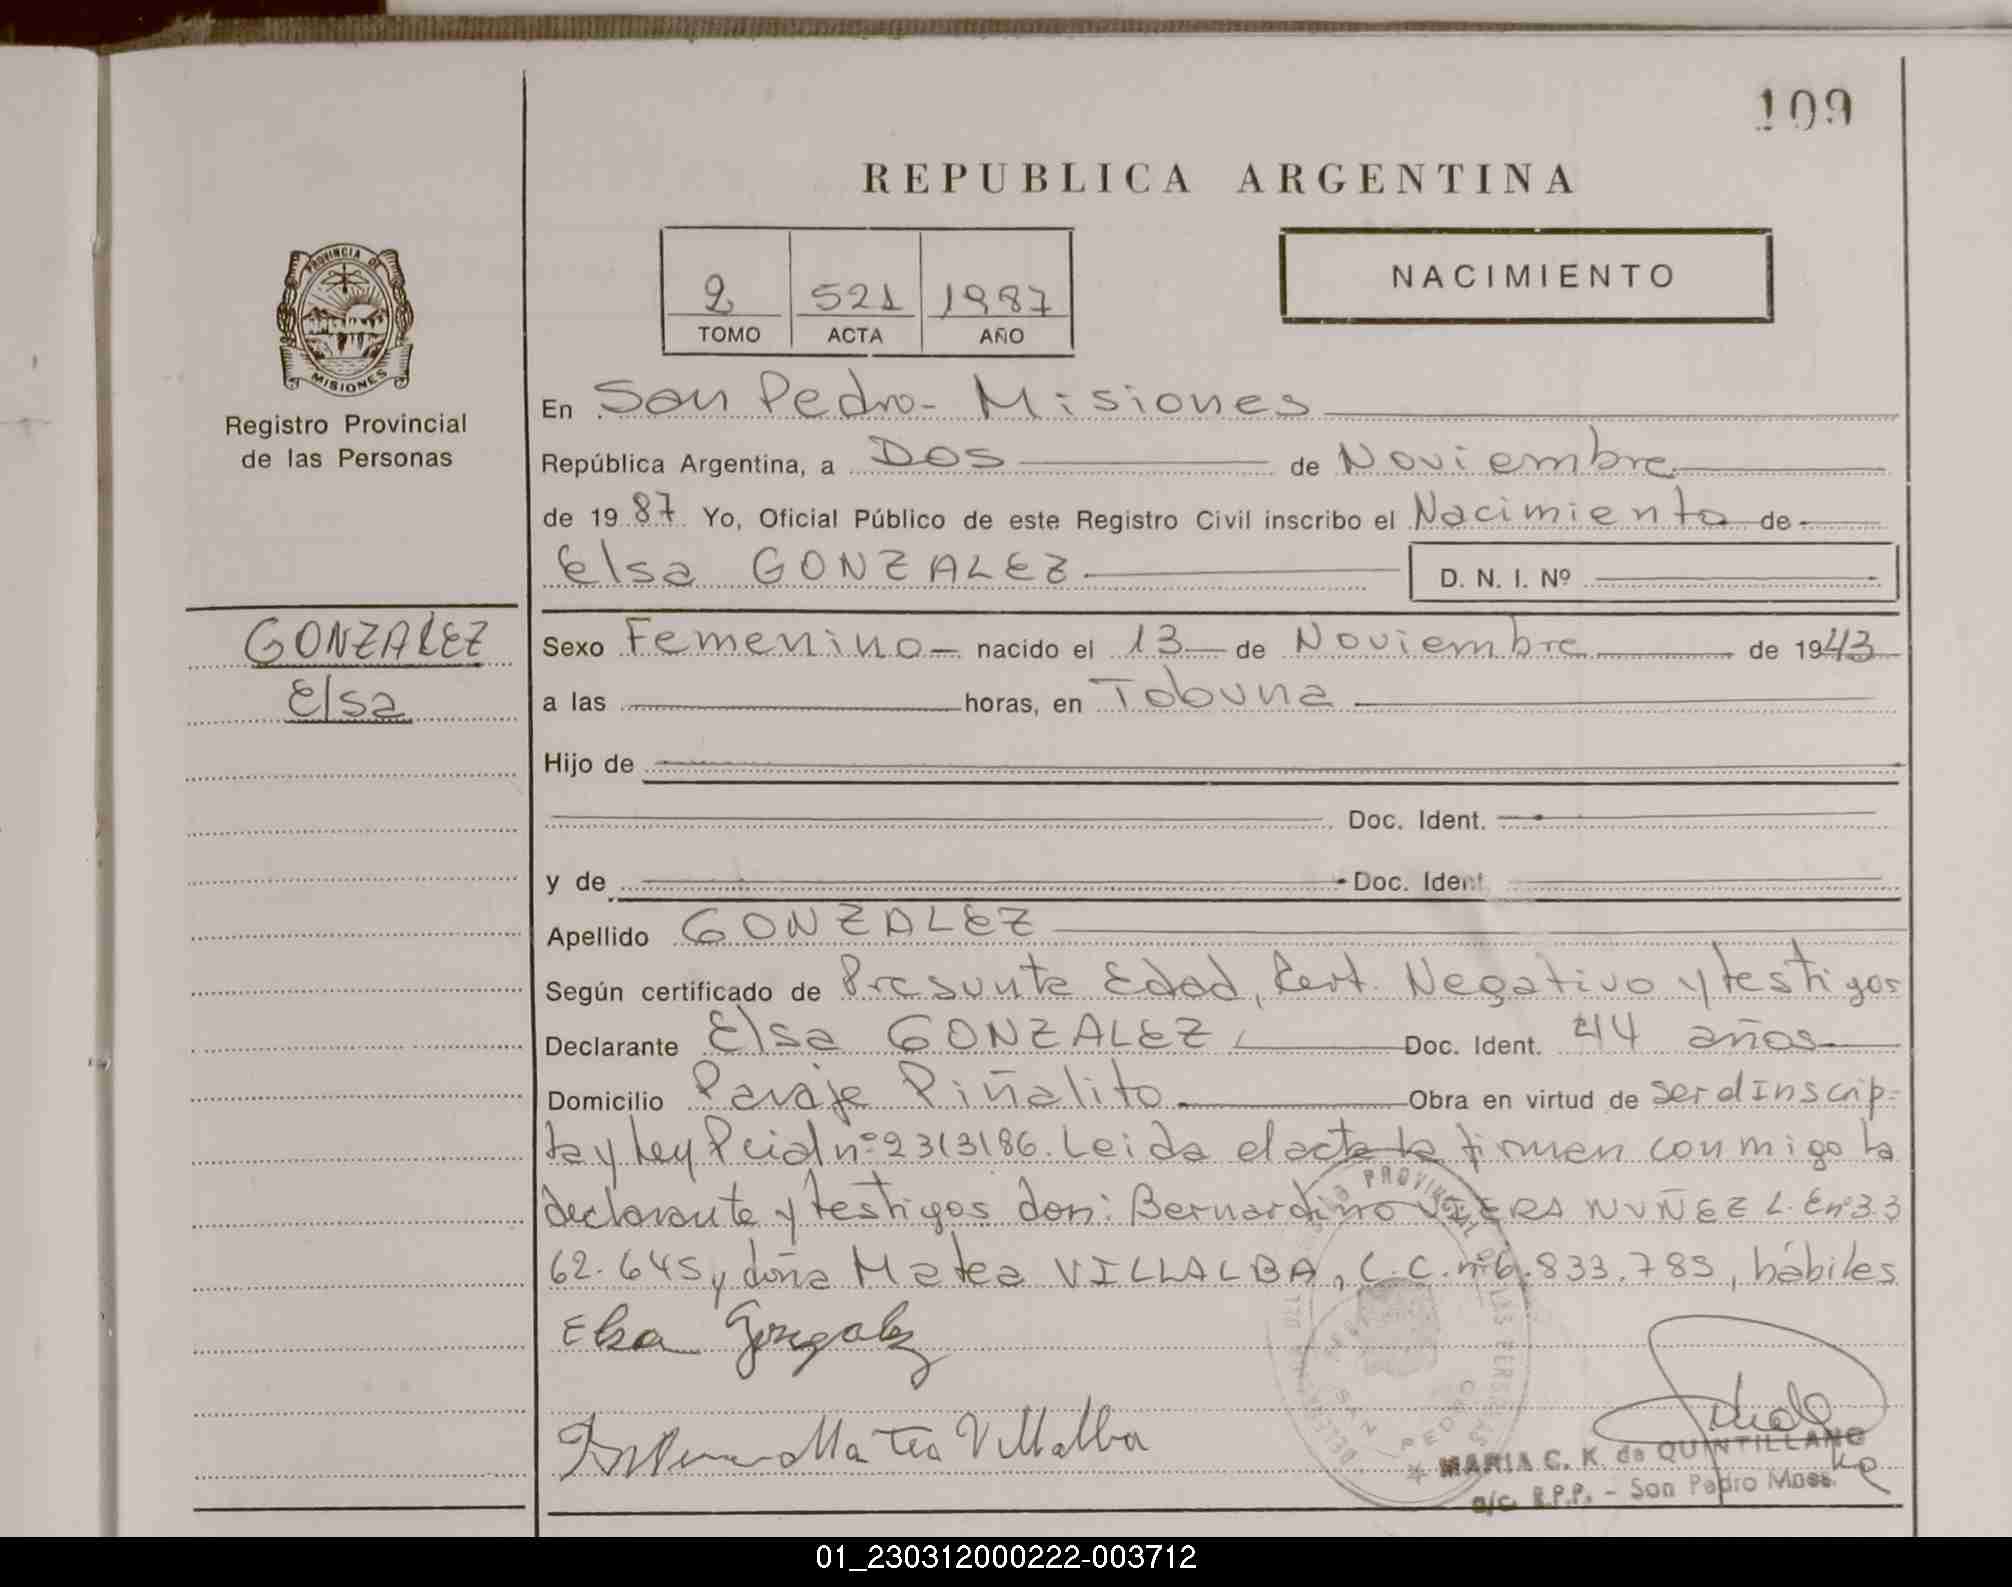 109
REPUBLICA ARGENTINA
2 521 1987
TOMO ACTA AÑO
NACIMIENTO
PROVINCIA DE
MISIONES
Registro Provincial
de las Personas
En San Pedro - Misiones
República Argentina, a Dos de Noviembre
de 1987 Yo, Oficial Público de este Registro Civil inscribo el Nacimiento de
Elsa GONZALEZ D. N. I. Nº
GONZALEZ
Elsa
Sexo Femenino nacido el 13 de Noviembre de 1943
a las horas, en Tobuna
Hijo de
Doc. Ident.
y de Doc. Ident
Apellido GONZALEZ
Según certificado de Presunta Edad, Cert. Negativo y testigos
Declarante Elsa GONZALEZ Doc. Ident. 44 años
Domicilio Paraje Piñalito Obra en virtud de ser d Inscrip=
ta y Ley Pcial nº 2313/86. Leida el acta la firman conmigo la
declarante y testigos don: Bernardino VIERA NUÑEZ L. E nº 3.3
62.645 y doña Matea VILLALBA, L. C. nº 6.833.785, hábiles
Elsa Gonzalez
Matea Villalba
SAN PEDRO
MARIA C. K. de QUINTILLANO
a/c. R.P.P. - San Pedro Mnes.
01_230312000222-003712